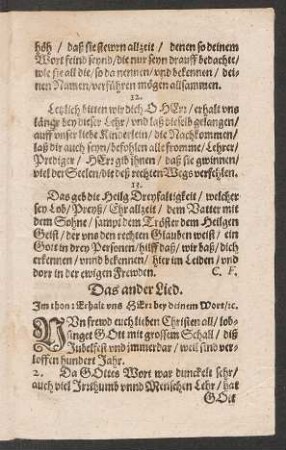 höh / daß sie stewrn allzeit / denen so deinem
Wort feind seynd / die nur seyn drauff bedachte /
wie sie all die / so da nennen / vnd bekennen / dei-
nen Namen / verführen mögen allsammen.
12.
Letzlich bitten wir dich O HErr / erhalt vns
längs bey dieser Lehr / vnd laß dieselb gelangen /
auff vnser liebe Kinderlein / die Nachkommen /
laß dir auch seyn / befohlen alle fromme / Lehrer /
Prediger / HErr gib ihnen / daß sie gwinnen /
viel der Seelen / die deß rechten Wegs verfehlen.
13.
Das geb die Heilg Dreyfaltigkeit / welcher
sey Lob / Preyß / Ehr allzeit / dem Vatter mit
dem Sohne / sampt dem Tröster dem Heilgen
Geist / der vns den rechten Glauben weist / ein
Gott in drey Personen / hilff daß / wir baß / dich
erkennen / vnnd bekennen / hier im Leiden / vnd
dort in der ewigen Frewden. C. F.
Das ander Lied.
Im thon: Erhalt vns HErr bey deinem Wort / ic.
NVn frewd euch lieben Christen all / lob-
singet GOtt mit grossem Schall / diß
Jubelfest vnd jmmerdar / weil sind ver-
loffen hundert Jahr.
2. Da GOttes Wort war dunckelt sehr /
auch viel Irrthumb vnnd Menschen Lehr / hat
GOtt